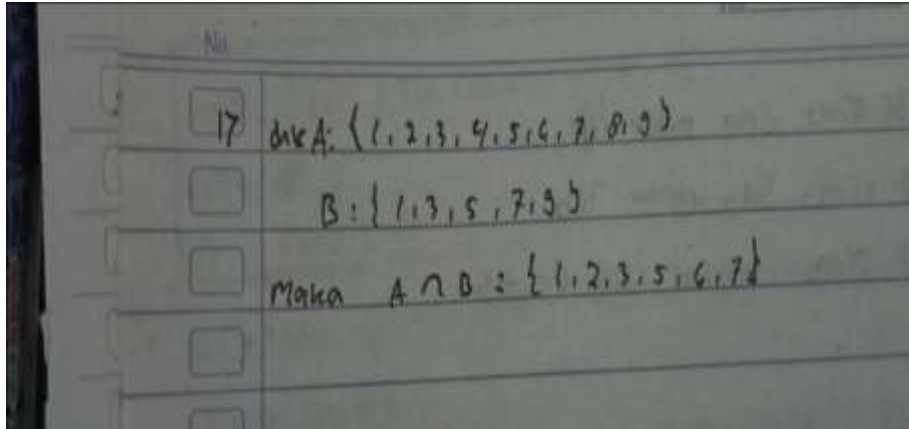 No
17 dik A: {1, 2, 3, 4, 5, 6, 7, 8, 9}
B: {1, 3, 5, 7, 9}
Maka A ∩ B : {1, 2, 3, 5, 6, 7}